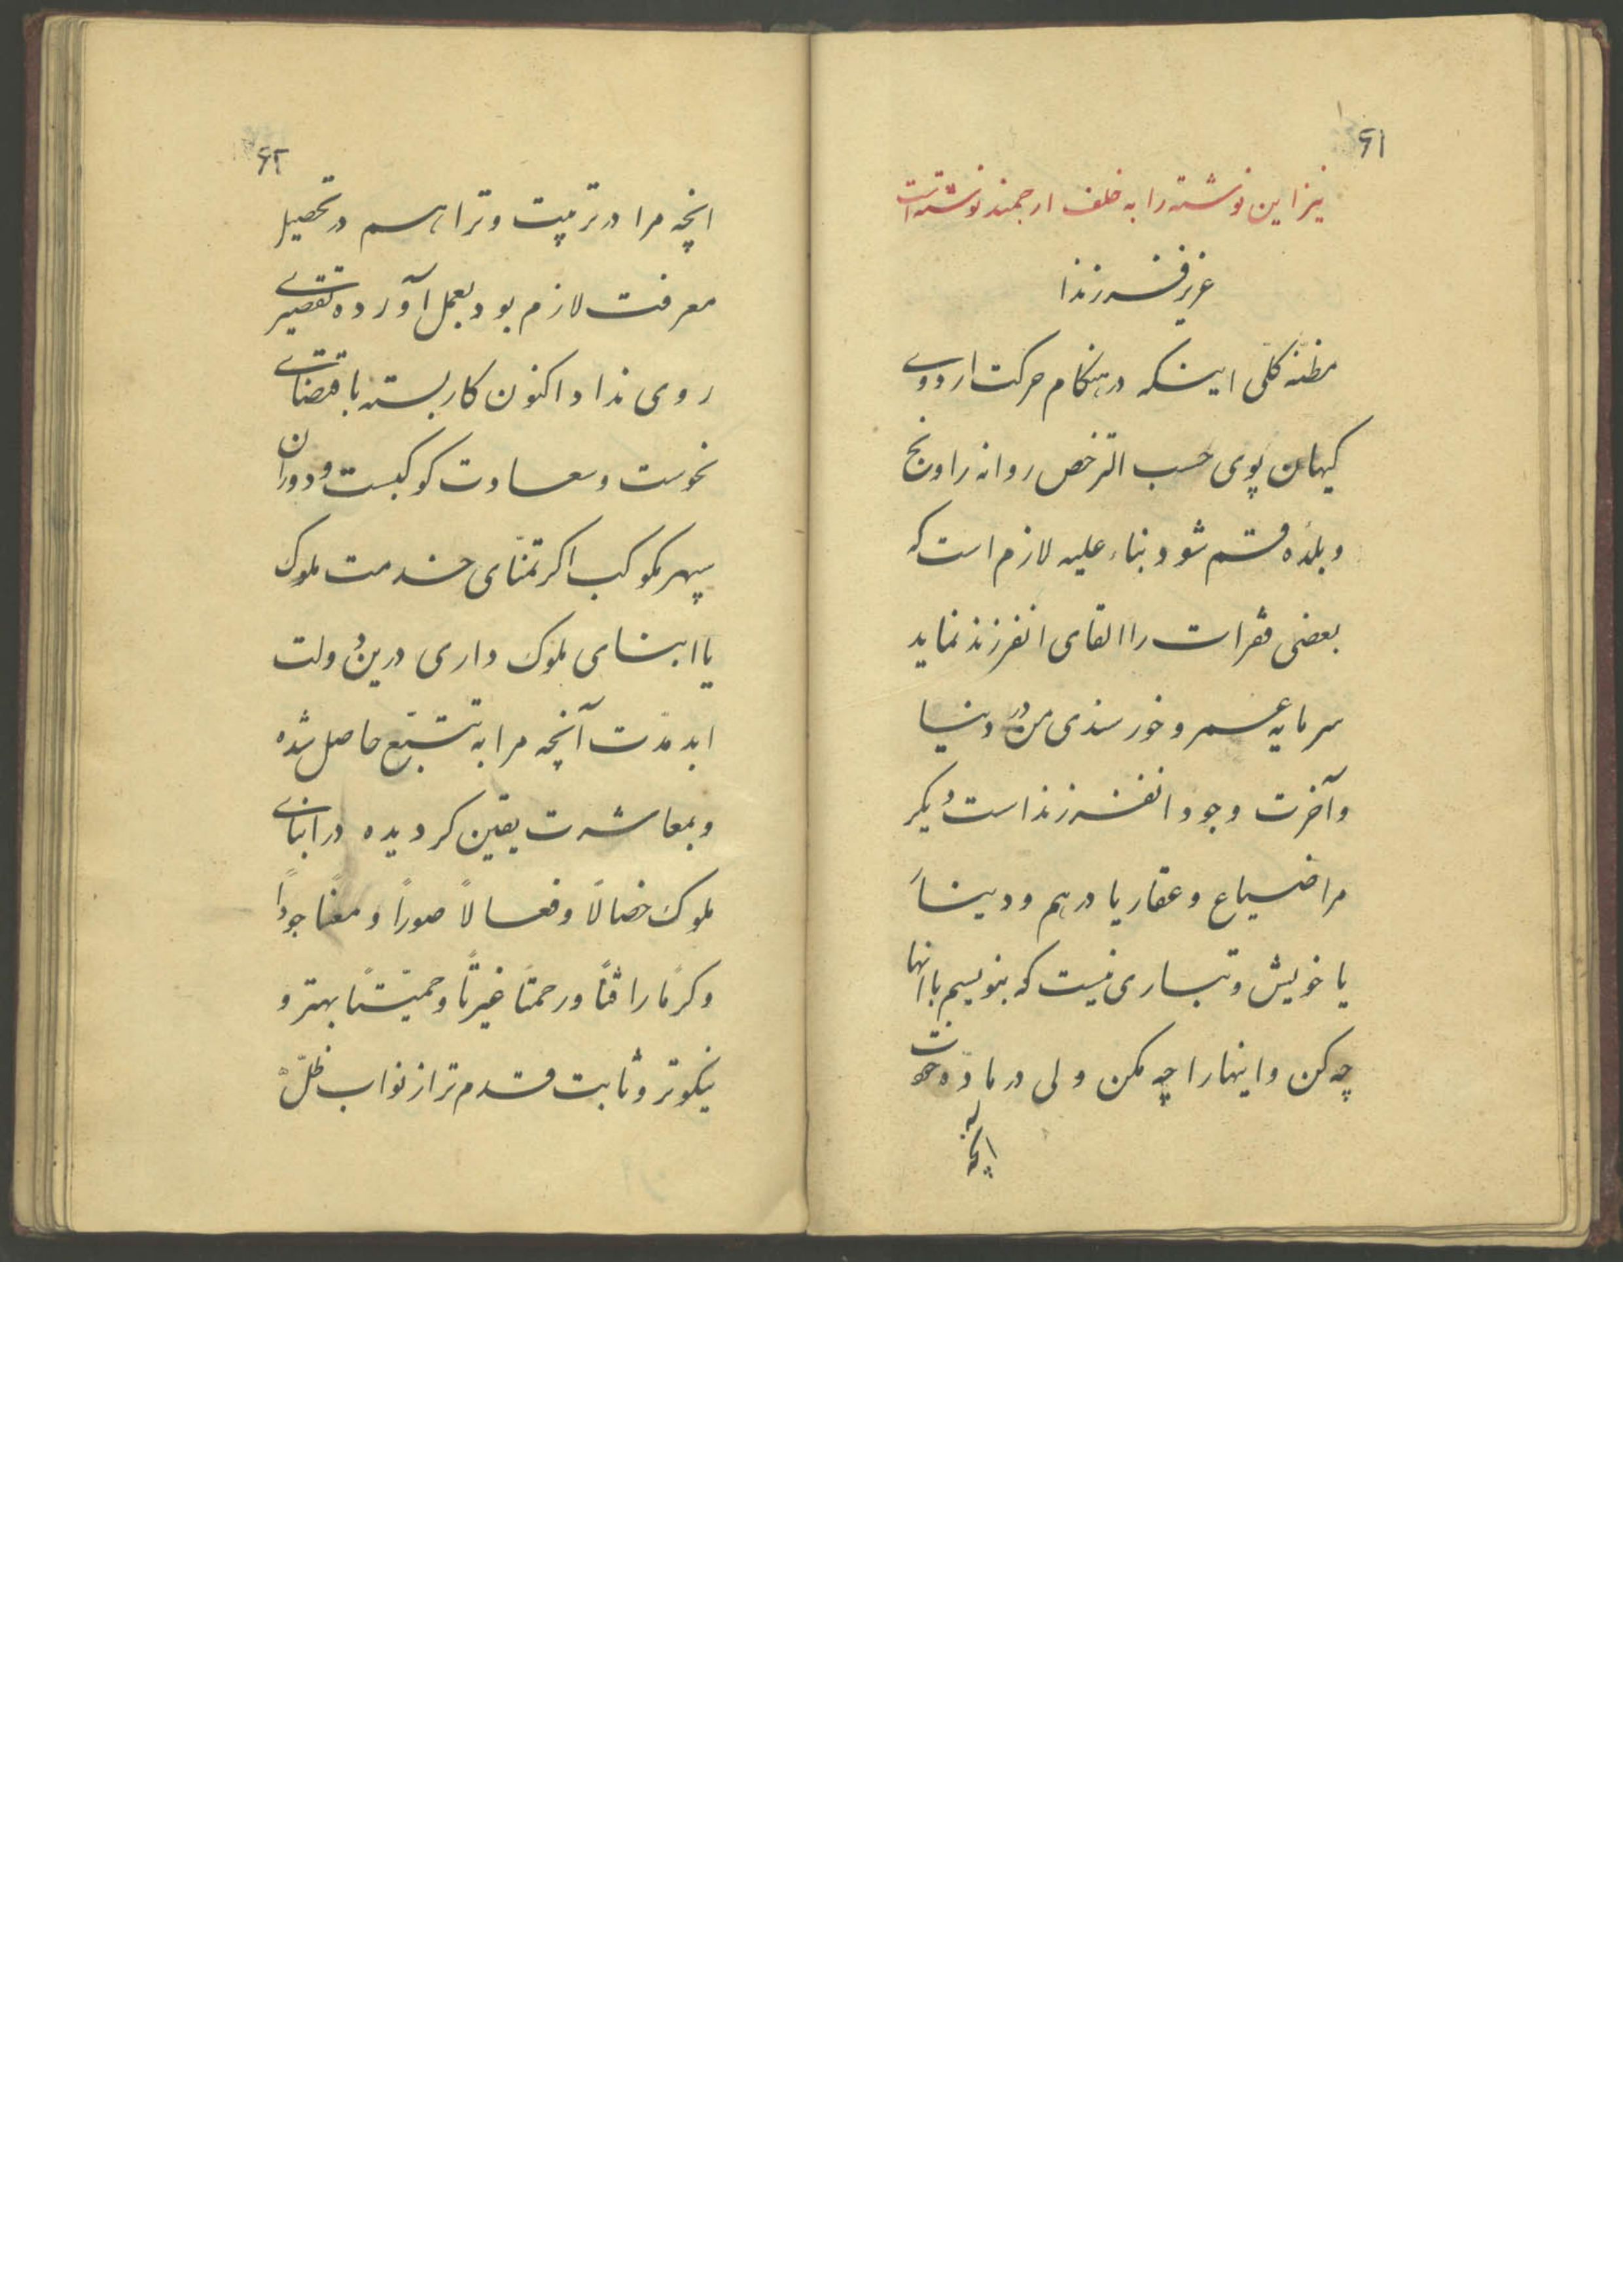 ۶۱
نیز این نوشته را به خلف ارجمند نوشته است
عزیز فرزندا
مظنّه کلّی اینکه در هنکام حرکت اردوی
کیهان پوی حسب الترخص روانه راونج
و بلده قم شود بناء علیه لازم است که
بعضی فقرات را القای انفرزند نماید
سرمایه عمر و خورسندی من در دنیا
و آخرت وجود انفرزند است دیکر
مرا ضیاع و عقار یا درهم و دینار
یا خویش و تباری نیست که بنویسم با انها
چه کن و اینها را چه مکن ولی در مادّه خودت
انچه
۶۲
انچه مرا در تربیت و ترا هم در تحصیل
معرفت لازم بود بعمل آورده تقصیری
روی نداد اکنون کار بسته باقتضای
نحوست و سعادت کوکبست و دوران
سپهر مکوکب اکر تمنّای خدمت ملوک
یا ابنای ملوک داری درین دولت
ابد مدّت آنچه مرا به تتبّع حاصل شده
و بمعاشرت یقین کردیده در ابنای
ملوک خصالاً و فعالاً صوراً و معناً جوداً
و کرماً رافتاً و رحمتاً غیرتاً و حمیّتاً بهتر و
نیکوتر و ثابت قدم تر از نواب ظلّ